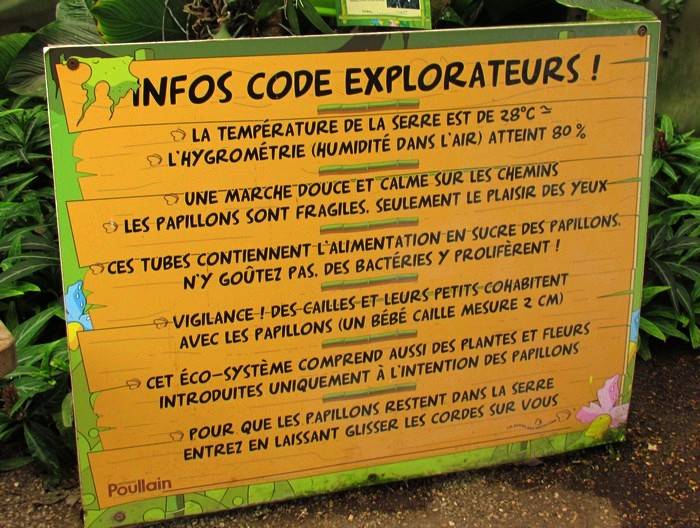 INFOS CODE EXPLORATEURS !
LA TEMPÉRATURE DE LA SERRE EST DE 28°C ≃
L'HYGROMÉTRIE (HUMIDITÉ DANS L'AIR) ATTEINT 80 %
UNE MARCHE DOUCE ET CALME SUR LES CHEMINS
LES PAPILLONS SONT FRAGILES. SEULEMENT LE PLAISIR DES YEUX
CES TUBES CONTIENNENT L'ALIMENTATION EN SUCRE DES PAPILLONS.
N'Y GOÛTEZ PAS. DES BACTÉRIES Y PROLIFÈRENT !
VIGILANCE ! DES CAILLES ET LEURS PETITS COHABITENT
AVEC LES PAPILLONS (UN BÉBÉ CAILLE MESURE 2 CM)
CET ÉCO-SYSTÈME COMPREND AUSSI DES PLANTES ET FLEURS
INTRODUITES UNIQUEMENT À L'INTENTION DES PAPILLONS
POUR QUE LES PAPILLONS RESTENT DANS LA SERRE
ENTREZ EN LAISSANT GLISSER LES CORDES SUR VOUS
Poullain